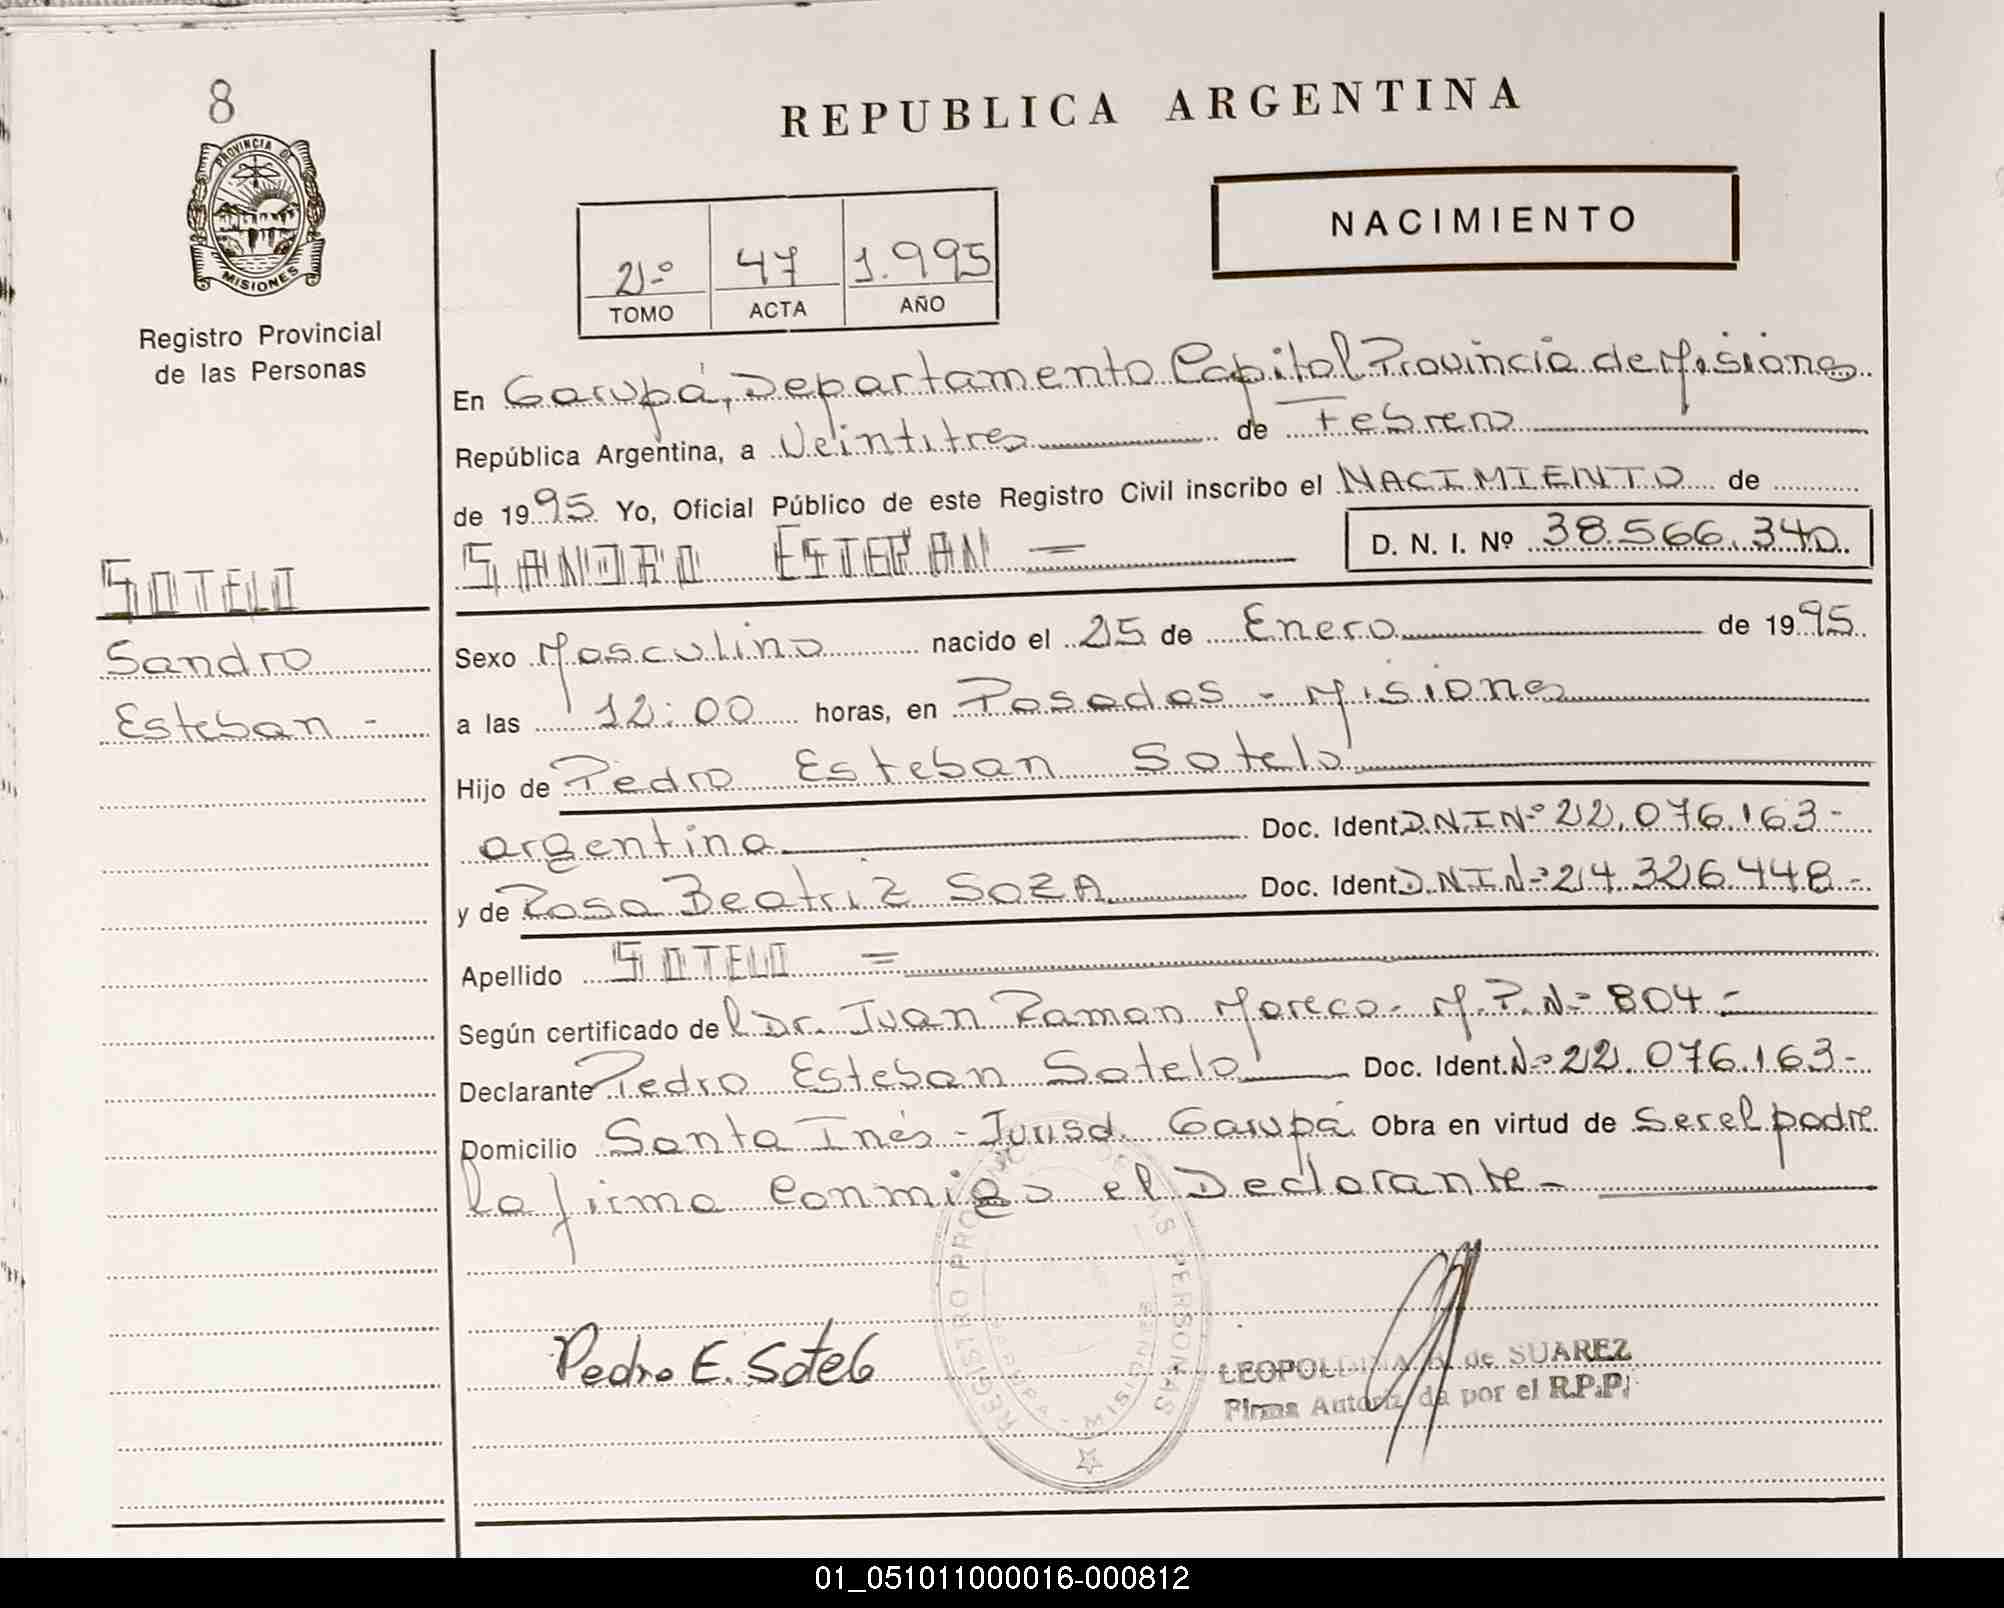 8
PROVINCIA DE
MISIONES
Registro Provincial
de las Personas
SOTELO
Sandro
Esteban -
REPUBLICA ARGENTINA
NACIMIENTO
2º 47 1.995
TOMO ACTA AÑO
En Garupá, Departamento Capital Provincia de Misiones
República Argentina, a Veintitres de Febrero
de 1995 Yo, Oficial Público de este Registro Civil inscribo el NACIMIENTO de
SANDRO ESTEBAN = D. N. I. Nº 38.566.340
Sexo Masculino nacido el 25 de Enero de 1995
a las 12:00 horas, en Posadas - Misiones
Hijo de Pedro Esteban Sotelo
argentina Doc. Ident. D.N.I Nº 22.076.163-
y de Rosa Beatriz SOZA Doc. Ident. D.N.I Nº 24.326.448-
Apellido SOTELO =
Según certificado del Dr. Juan Ramon Moreco - M.P.Nº 804.-
Declarante Pedro Esteban Sotelo Doc. Ident. Nº 22.076.163-
Domicilio Santa Inés - Jurisd. Garupá Obra en virtud de ser el padre
la firma Conmigo el Declarante -
Pedro E. Sotelo
REGISTRO PROVINCIAL DE LAS PERSONAS
GARUPA - MISIONES
de SUAREZ
Firma Autorizada por el R.P.P.
01_051011000016-000812